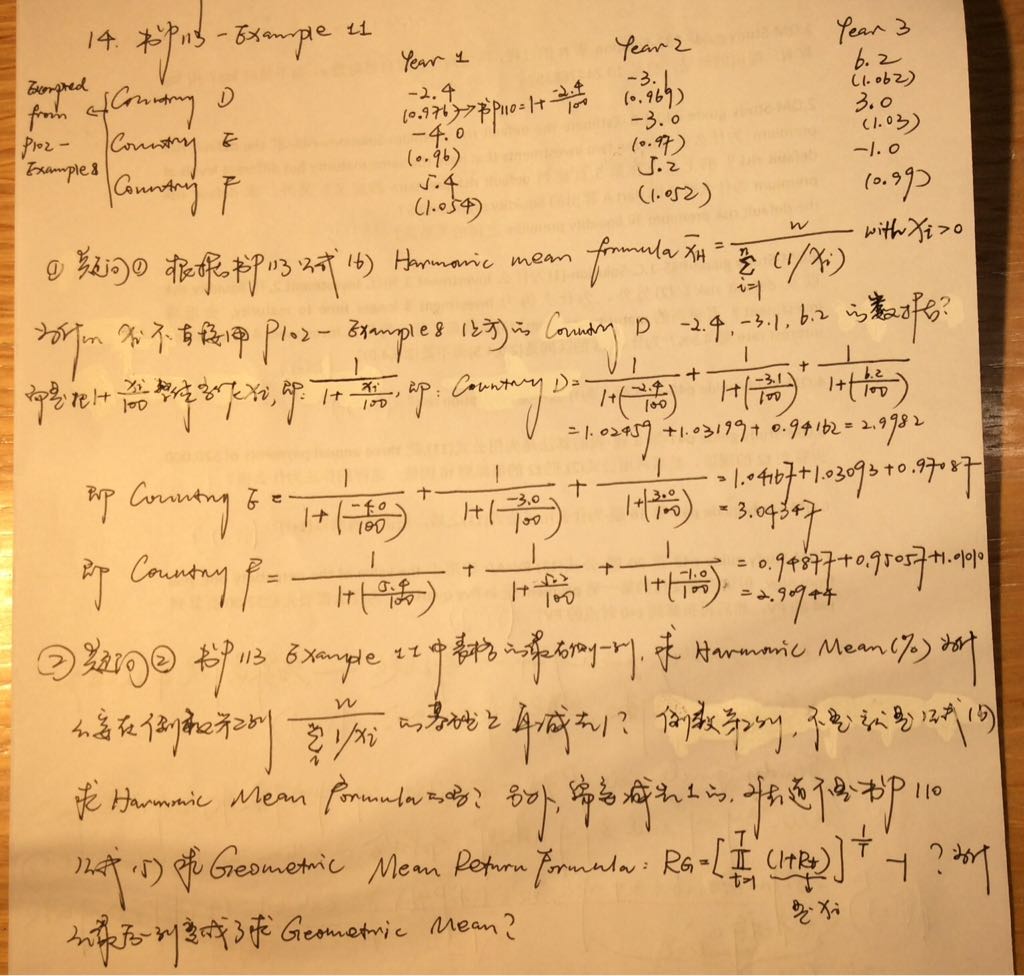 14. 书P113 - Example 11
Year 1 Year 2 Year 3
Country D -2.4 -3.1 6.2
from (0.976)→书P110=1+\frac{-2.4}{100} (0.969) (1.062)
P102- Country E -4.0 -3.0 3.0
Example 8 (0.96) (0.97) (1.03)
Country F 5.4 5.2 -1.0
(1.054) (1.052) (0.99)
① 疑问① 根据书P113公式(6) Harmonic mean formula \overline{X}_H = \frac{n}{\sum_{i=1}^{n}(1/X_i)} with X_i>0
为什么不直接用 P102 - Example 8 (上方)的 Country D -2.4, -3.1, 6.2 的数据?
而是把1+\frac{X_i}{100}整体当作X_i, 即: \frac{1}{1+\frac{X_i}{100}}, 即: Country D = \frac{1}{1+(\frac{-2.4}{100})} + \frac{1}{1+(\frac{-3.1}{100})} + \frac{1}{1+(\frac{6.2}{100})}
=1.02459+1.03199+0.94162=2.9982
即 Country E = \frac{1}{1+(\frac{-4.0}{100})} + \frac{1}{1+(\frac{-3.0}{100})} + \frac{1}{1+(\frac{3.0}{100})} = 1.04167+1.03093+0.97087
= 3.04347
即 Country F = \frac{1}{1+(\frac{5.4}{100})} + \frac{1}{1+\frac{5.2}{100}} + \frac{1}{1+(\frac{-1.0}{100})} = 0.94877+0.95057+1.01010
= 2.90944
② 疑问② 书P113 Example 11中表格的最右侧一列, 求 Harmonic Mean(%) 为什
么要在倒数第2列 \frac{n}{\sum_{i}^{n}1/X_i} 的基础上再减去1? 倒数第2列, 不是就是公式(6)
求 Harmonic Mean Formula 的吗? 另外, 减去1的, 难道不是书P110
公式(5) 求 Geometric Mean Return Formula: R_G=[\prod_{t=1}^{T}(1+R_t)]^{\frac{1}{T}} -1 ? 为什
是X_i
么最后一列变成了求 Geometric Mean?